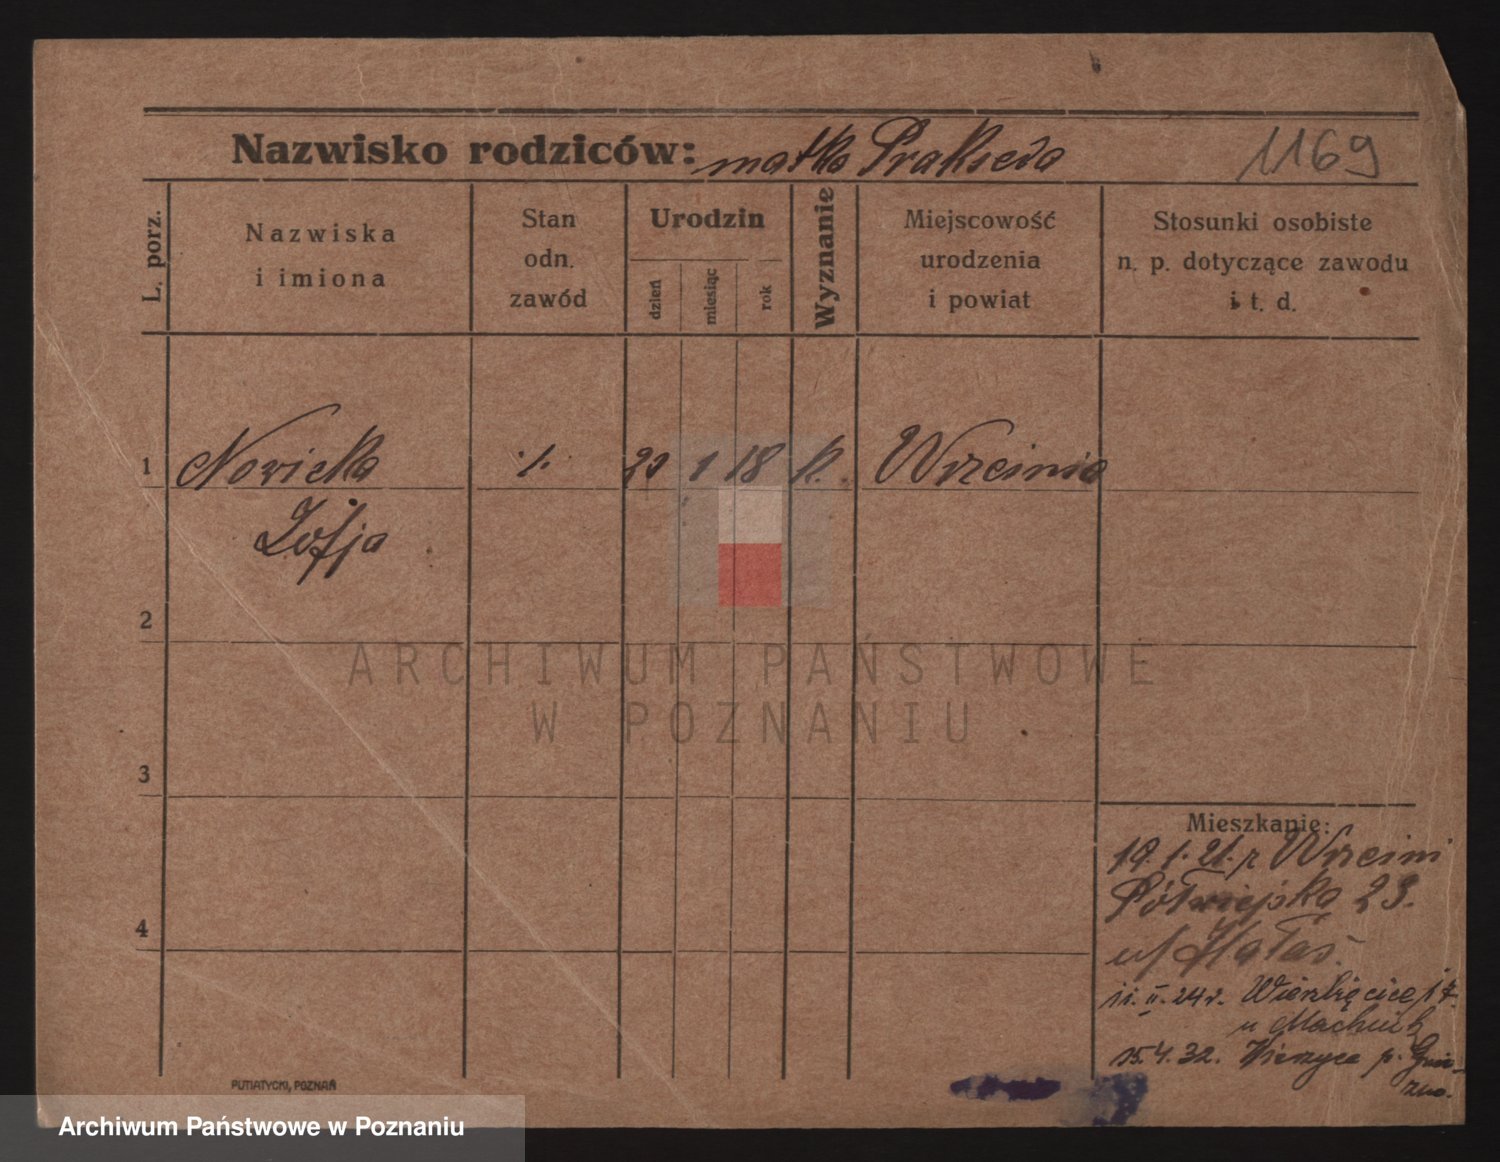 Nazwisko rodziców: matka Prakseda 1169
L. porz.
Nazwiska i imiona
Stan odn. zawód
Urodzin
dzień
miesiąc
rok
Wyznanie
Miejscowość urodzenia i powiat
Stosunki osobiste n. p. dotyczące zawodu i t. d.
1 Nowicka 1 18 k. Wrzeinia
Zofja
2
ARCHIWUM PAŃSTWOWE
W POZNANIU
3
Mieszkanie:
19.1.21. z Wrzeini
Półwiejska 23.
u/ Hałas.
4
11.II.24r. Wierzbięcice 17.
u
15.4.32. p. Gnie-
zno.
PUTIATYCKI, POZNAŃ
Archiwum Państwowe w Poznaniu